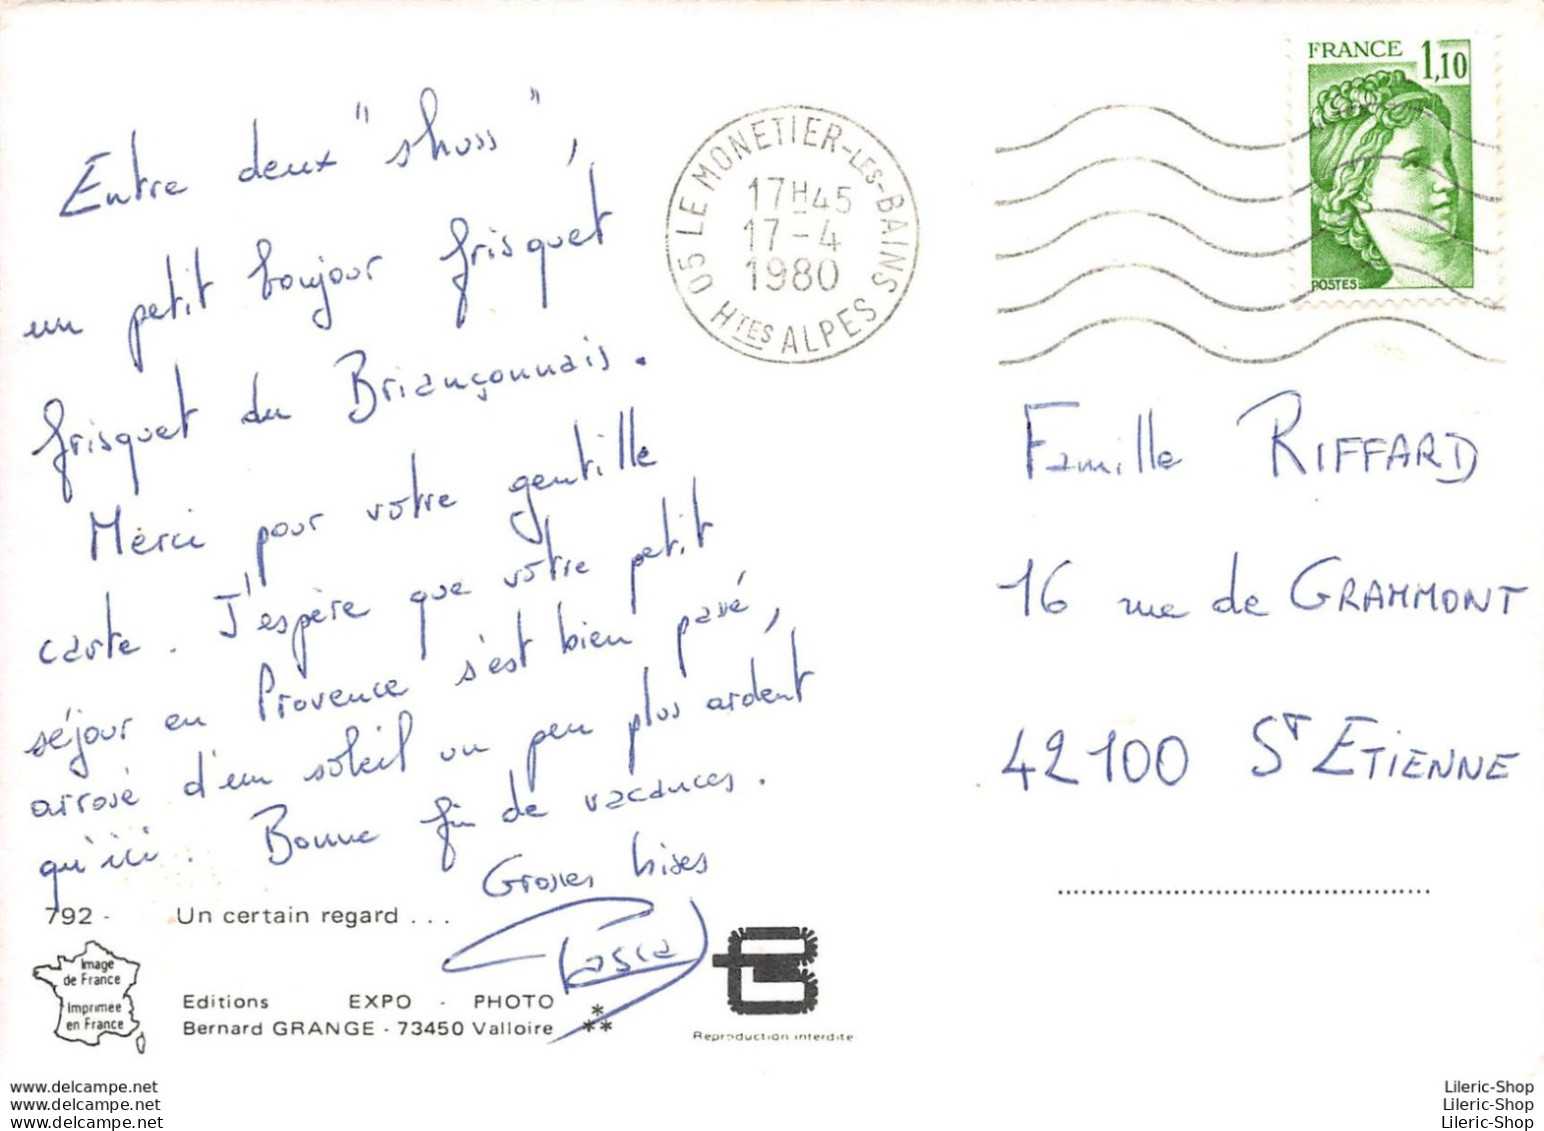 Entre deux "shuss",
un petit bonjour frisquet
frisquet du Briançonnais.
Merci pour votre gentille
carte. J'espère que votre petit
séjour en Provence s'est bien passé,
arrosé d'un soleil un peu plus ardent
qu'ici. Bonne fin de vacances.
Grosses bises
Pascal
792 - Un certain regard ...
Image
de France
Imprimée
en France
Editions EXPO - PHOTO
Bernard GRANGE - 73450 Valloire
Reproduction interdite
05 LE MONETIER-LES-BAINS
17H45
17-4
1980
HTES ALPES
FRANCE 1,10
POSTES
Famille RIFFARD
16 rue de GRAMMONT
42100 ST ETIENNE
www.delcampe.net
www.delcampe.net
www.delcampe.net
Lileric-Shop
Lileric-Shop
Lileric-Shop